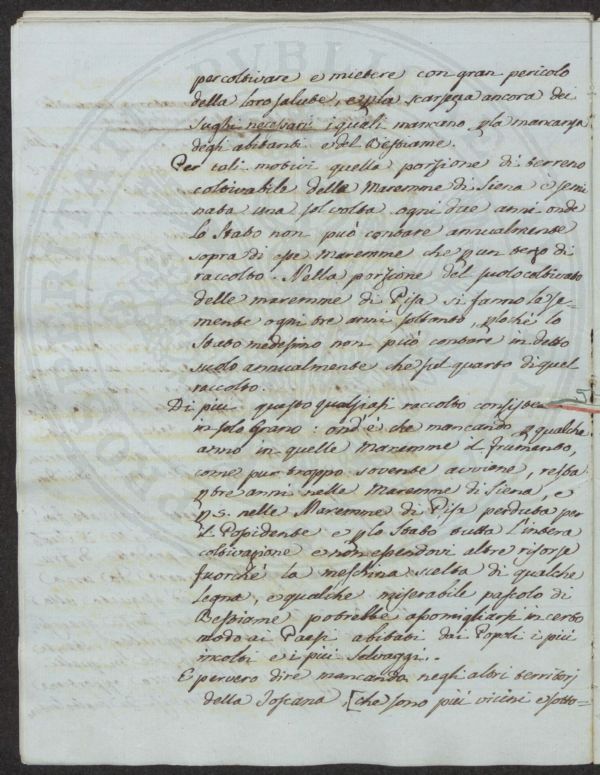 per coltivare e mietere con gran pericolo
della loro salute, e p la scarsezza ancora dei
sughi necessari i quali mancano p la mancanza
degli abitanti e del Bestiame.
Per tali motivi quella porzione di terreno
coltivabile delle Maremme di Siena e semi
nata una sol volta ogni due anni onde
lo Stato non può contare annualmente
sopra di esse Maremme che p un terzo di
raccolto. Nella porzione del suolo coltivato
delle maremme di Pisa si fanno le se=
mente ogni tre anni soltanto, p lochè lo
Stato medesimo non può contare in detto
suolo annualmente che sul quarto di quel
raccolto.
Di più questo qualsiasi raccolto consiste
in solo Grano: ond'è che mancando p qualche
anno in quelle Maremme il frumento,
come pur troppo sovente avviene, resta
p tre anni nelle Maremme di Siena, e
p 5. nelle Maremme di Pisa perduta per
il Possidente e p lo Stato tutta l'intera
coltivazione e non essendovi altre risorse
fuorchè la meschina scelta di qualche
legna, e qualche miserabile pascolo di
Bestiame potrebbe assomigliarsi in certo
modo ai Paesi abitati dai Popoli i più
incolti e i più selvaggi.
E per vero dire mancando negli altri territorj
della Toscana, [che sono più vicini e sotto=
PUBLIC
PROPRIETATI